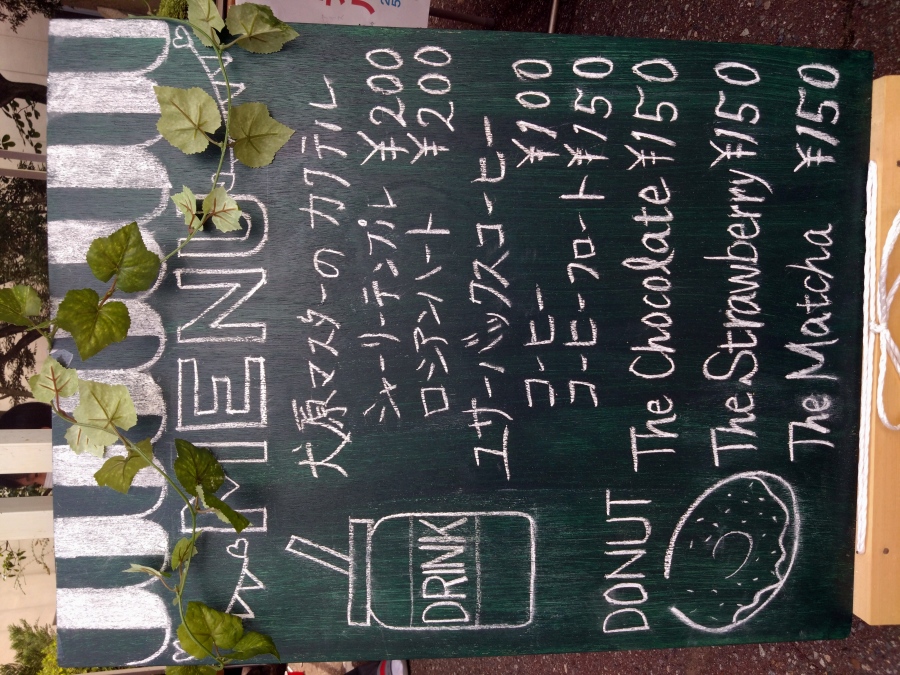 MENU
大原マスターの カクテル
シャーリーテンプル ¥200
ロシアンハート ¥200
ユサーバックスコーヒー
コーヒー ¥100
コーヒーフロート ¥150
DRINK
DONUT
The Chocolate ¥150
The Strawberry ¥150
The Matcha ¥150